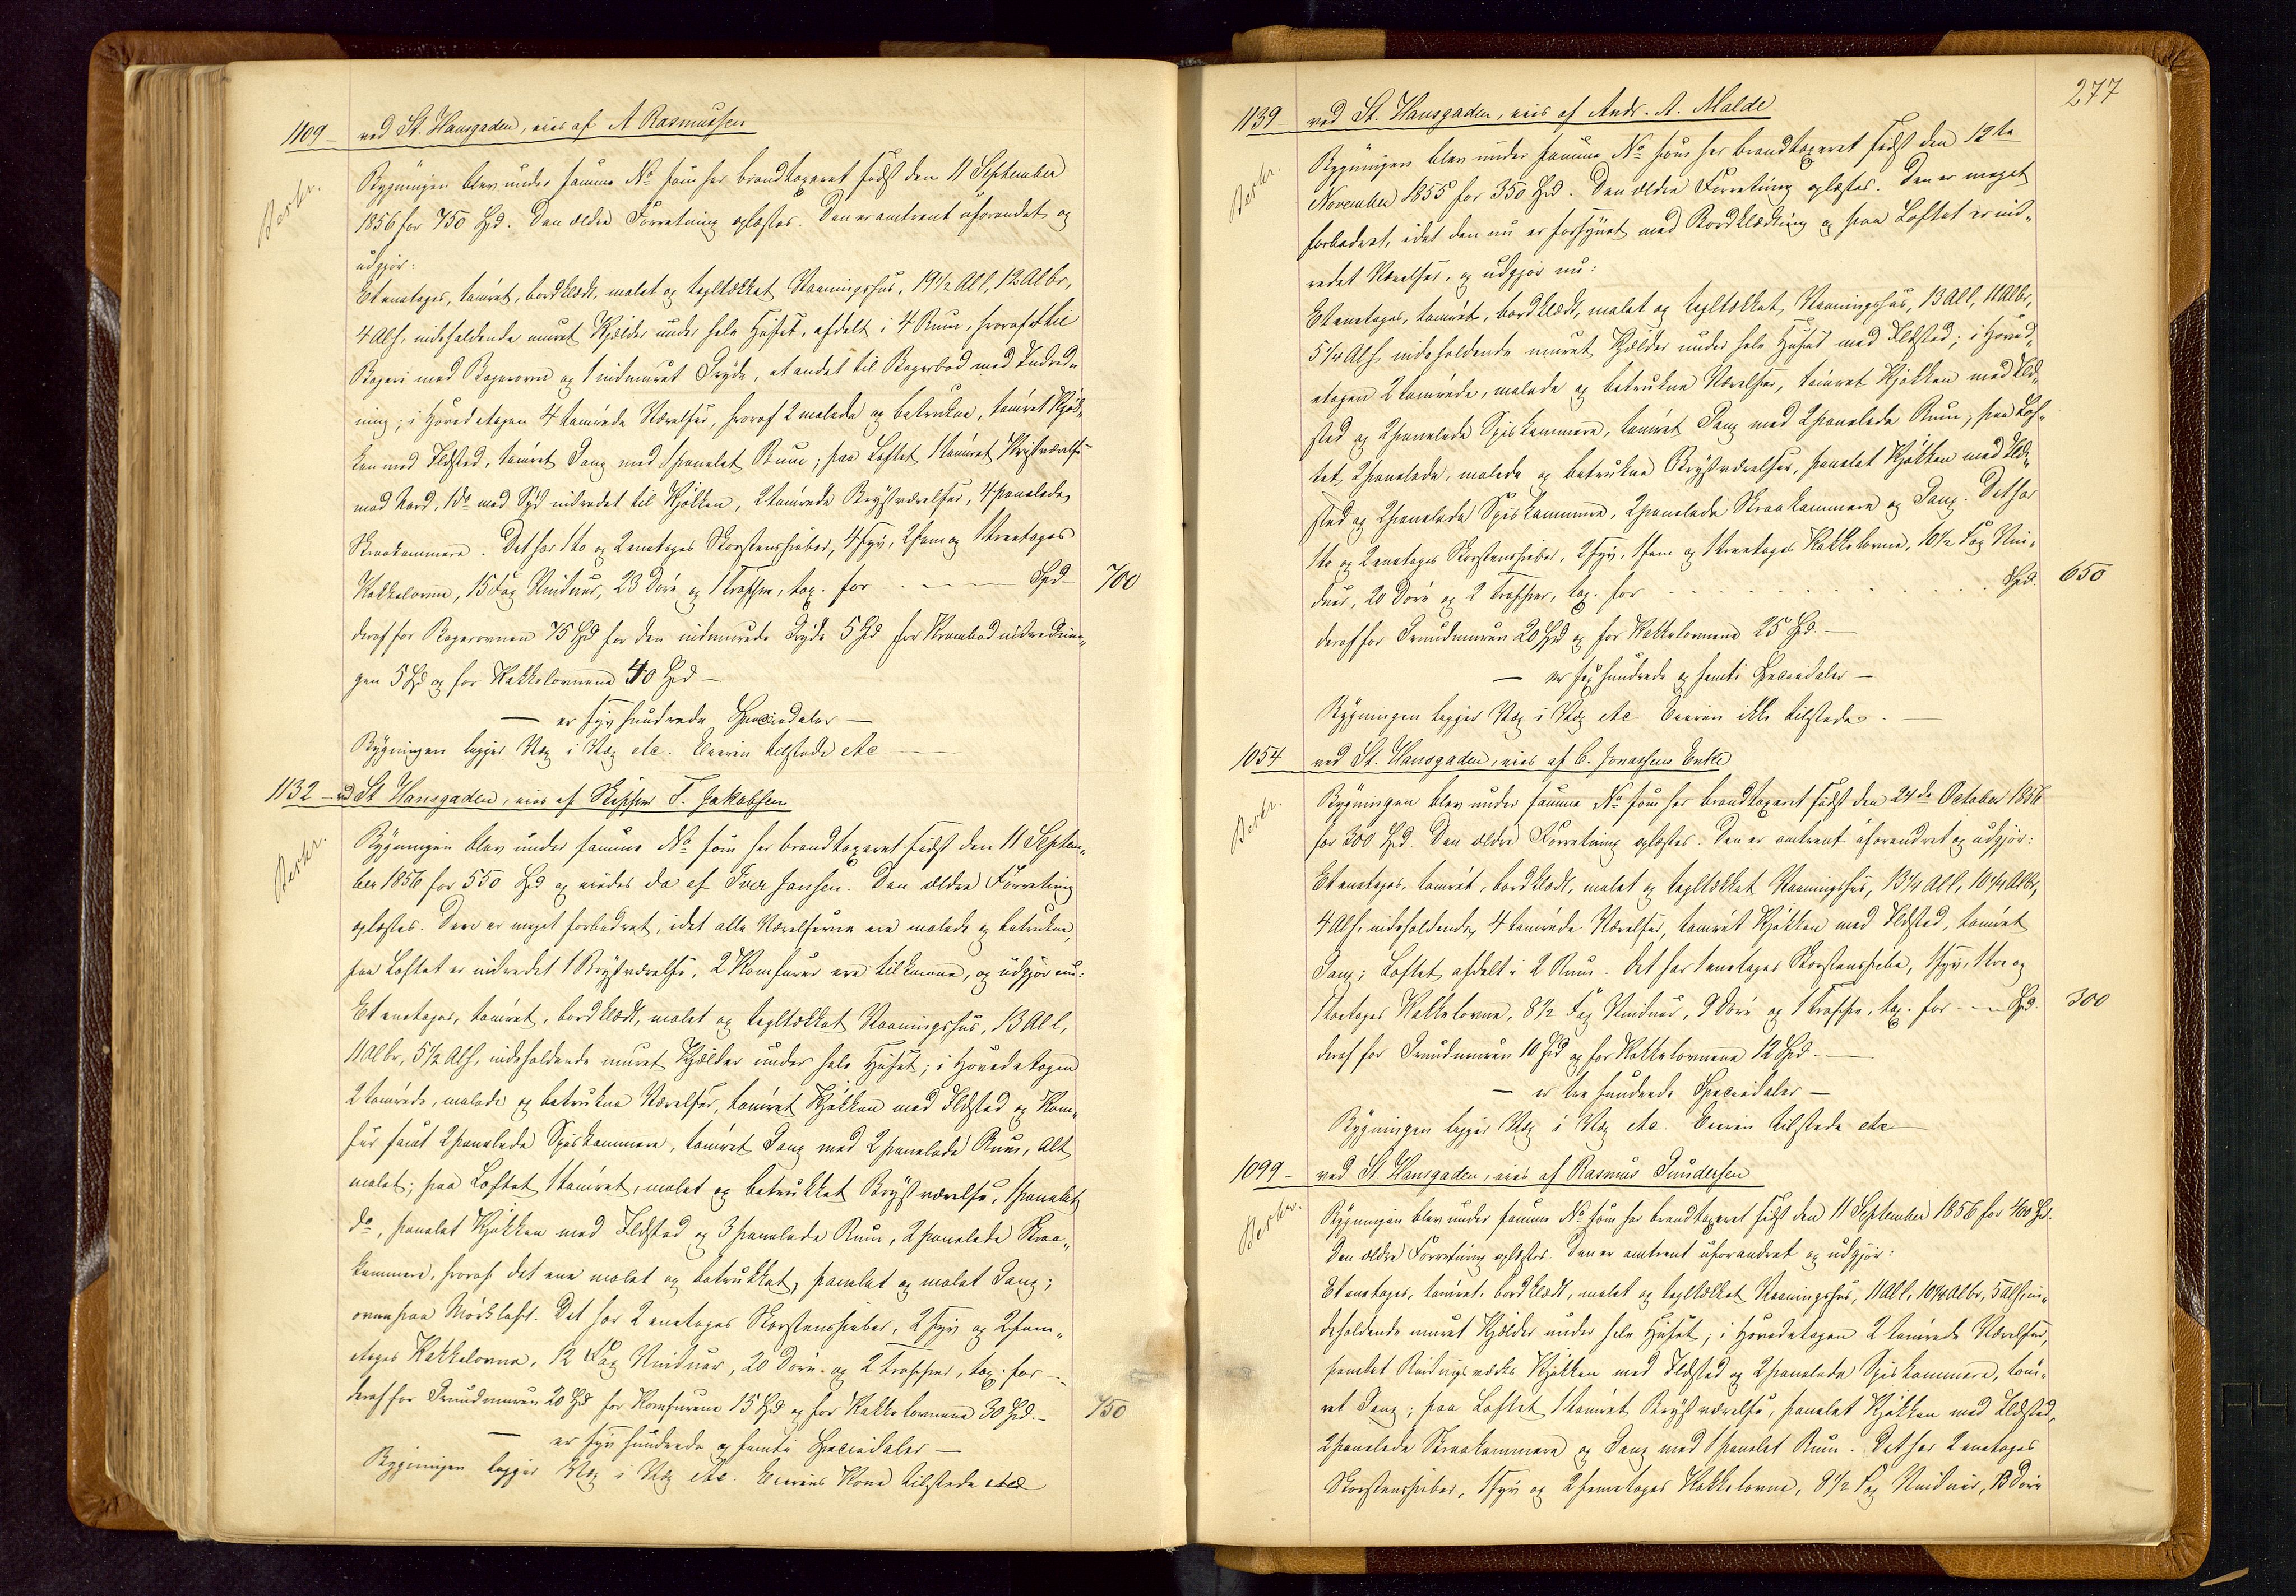 1109 – ved St. Hansgaden, eies af A Rasmussen
Beskr.
Bygningen blev under samme No som her brandtaxeret sidst den 11 September
1856 for 750 Spd. Den ældre Forretning oplæstes. Den er omtrent uforandret og
udgjør:
Et enetages, tømret, bordklædt, malet og tegltækket Vaaningshus, 19½ All, 12 Albr,
4 Alh. indeholdende muret Kjelder under hele Huset, afdelt i 4 Rum, hvoraf et til
Bageri med Bagerovn og 1 indmuret Gryde, et andet til Bagerbod med Indred„
ning; i Hovedetagen 4 tømrede Værelser, hvoraf 2 malede og betrukne, tømret Kjøk„
ken med Ildsted, tømret Gang med 1 panelet Rum; paa Loftet 1 tømret Kvistværelse
mod Nord, 1 do mod Syd indredet til Kjøkken, 2 tømrede Brystværelser, 4 panelede
Skraakammere. Det har 1 to og 2 enetages Skorstenspiber, 4 syv, 2 fem og 1 treetages
Kakkelovne, 15 Fag Vinduer, 23 Døre og 1 Trappe, tax. for – – – Spd – 700
deraf for Bagerovnen 75 Spd for den indmurede Gryde 5 Spd for Krambodindrednin„
gen 5 Spd og for Kakkelovnene 40 Spd –
— er syv hundrede Speciedaler —
Bygningen ligger Væg i Væg etc. Eieren tilstede etc
1132 – ved St Hansgaden, eies af Skipper T. Jakobsen
Beskr.
Bygningen blev under samme No som her brandtaxeret sidst den 11 Septem„
ber 1856 for 550 Spd og eiedes da af Iver Jansen. Den ældre Forretning
oplæstes. Den er meget forbedret, idet alle Værelserne ere malede og betrukne,
paa Loftet er indredet 1 Brystværelse, 2 Komfurer ere tilkomne, og udgjør nu:
Et enetages, tømret, bordklædt, malet og tegltækket Vaaningshus, 13 All,
11 Albr, 5½ Alh, indeholdende muret Kjelder under hele Huset; i Hovedetagen
2 tømrede, malede og betrukne Værelser, tømret Kjøkken med Ildsted og Kom„
fur samt 2 panelede Spiskammere, tømret Gang med 2 panelede Rum, alt
malet; paa Loftet 1 tømret, malet og betrukket Brystværelse, 1 panelet
do, panelet Kjøkken med Ildsted og 3 panelede Rum, 2 panelede Skraa„
kammere, hvoraf det ene malet og betrukket, panelet og malet Gang;
ovenpaa Mørkloft. Det har 2 enetages Skorstenspiber, 2 syv og 2 fem„
etages Kakkelovne, 12 Fag Vinduer, 20 Døre og 2 Trapper, tax. for –
deraf for Grundmuren 20 Spd for Komfurene 15 Spd og for Kakkelovnene 30 Spd. – 750
— er syv hundrede og femti Speciedaler —
Bygningen ligger Væg i Væg etc. Eierens Kone tilstede etc
277
1139 ved St. Hansgaden, eies af Andr. A. Malde
Beskr.
Bygningen blev under samme No som her brandtaxeret sidst den 12te
November 1855 for 350 Spd. Den ældre Forretning oplæstes. Den er meget
forbedret, idet den nu er forsynet med Bordklædning og paa Loftet er ind„
redet Værelser, og udgjør nu:
Et enetages, tømret, bordklædt, malet og tegltækket Vaaningshus, 13 All, 11 Albr,
5¼ Alh, indeholdende muret Kjelder under hele Huset med Ildsted; i Hoved„
etagen 2 tømrede, malede og betrukne Værelser, tømret Kjøkken med Ild„
sted og 2 panelede Spiskammere, tømret Gang med 2 panelede Rum; paa Lof„
tet, 2 panelede, malede og betrukne Brystværelser, panelet Kjøkken med Ild„
sted og 2 panelede Spiskammere, 2 panelede Skraakammere og Gang. Det har
1 to og 2 enetages Skorstenspiber, 2 syv, 1 fem og 1 treetages Kakkelovne, 10½ Fag Vin„
duer, 20 Døre og 2 Trapper, tax. for . . . Spd. 650
deraf for Grundmuren 20 Spd og for Kakkelovnene 25 Spd. —
— er sex hundrede og femti Speciedaler —
Bygningen ligger Væg i Væg etc. Eieren ikke tilstede. —
1054 ved St. Hansgaden, eies af C. Jonassens Enke
Beskr.
Bygningen blev under samme No som her brandtaxeret sidst den 24de October 1856
for 300 Spd. Den ældre Forretning oplæstes. Den er omtrent uforandret og udgjør:
Et enetages, tømret, bordklædt, malet og tegltækket Vaaningshus, 13¼ All, 10¼ Albr,
4 Alh, indeholdende 4 tømrede Værelser, tømret Kjøkken med Ildsted, tømret
Gang; Loftet afdelt i 2 Rum. Det har 1 enetages Skorstenspibe, 1 syv, 1 tre og
1 toetages Kakkelovne, 8½ Fag Vinduer, 9 Døre og 1 Trappe, tax. for – – Spd. 300
deraf for Grundmuren 10 Spd og for Kakkelovnene 12 Spd. —
— er tre hundrede Speciedaler —
Bygningen ligger Væg i Væg etc. Eieren tilstede etc
1099 – ved St Hansgaden, eies af Rasmus Gundersen
Beskr.
Bygningen blev under samme No som her brandtaxeret sidst den 11 September 1856 for 400 Spd.
Den ældre Forretning oplæstes. Den er omtrent uforandret og udgjør:
Et enetages, tømret, bordklædt, malet og tegltækket Vaaningshus, 11 All, 10¼ Albr, 5 Alh, in„
deholdende muret Kjelder under hele Huset; i Hovedetagen 2 tømrede Værelser,
panelet Bindingsværks Kjøkken med Ildsted og 2 panelede Spiskammere, tøm„
ret Gang; paa Loftet 1 tømret Brystværelse, panelet Kjøkken med Ildsted,
2 panelede Skraakammere og Gang med 1 panelet Rum. Det har 2 enetages
Skorstenspiber, 1 syv og 2 femetages Kakkelovne, 8½ Fag Vinduer, 13 Døre